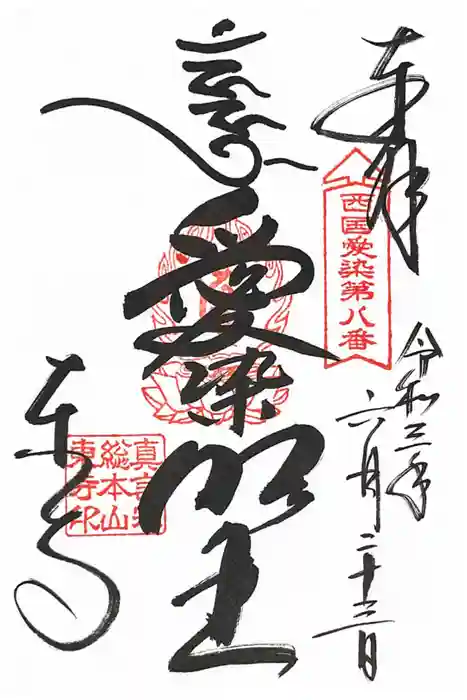 奉拝
西国愛染第八番
令和三年
六月二十三日
愛染明王
東寺
真言宗
総本山
東寺印